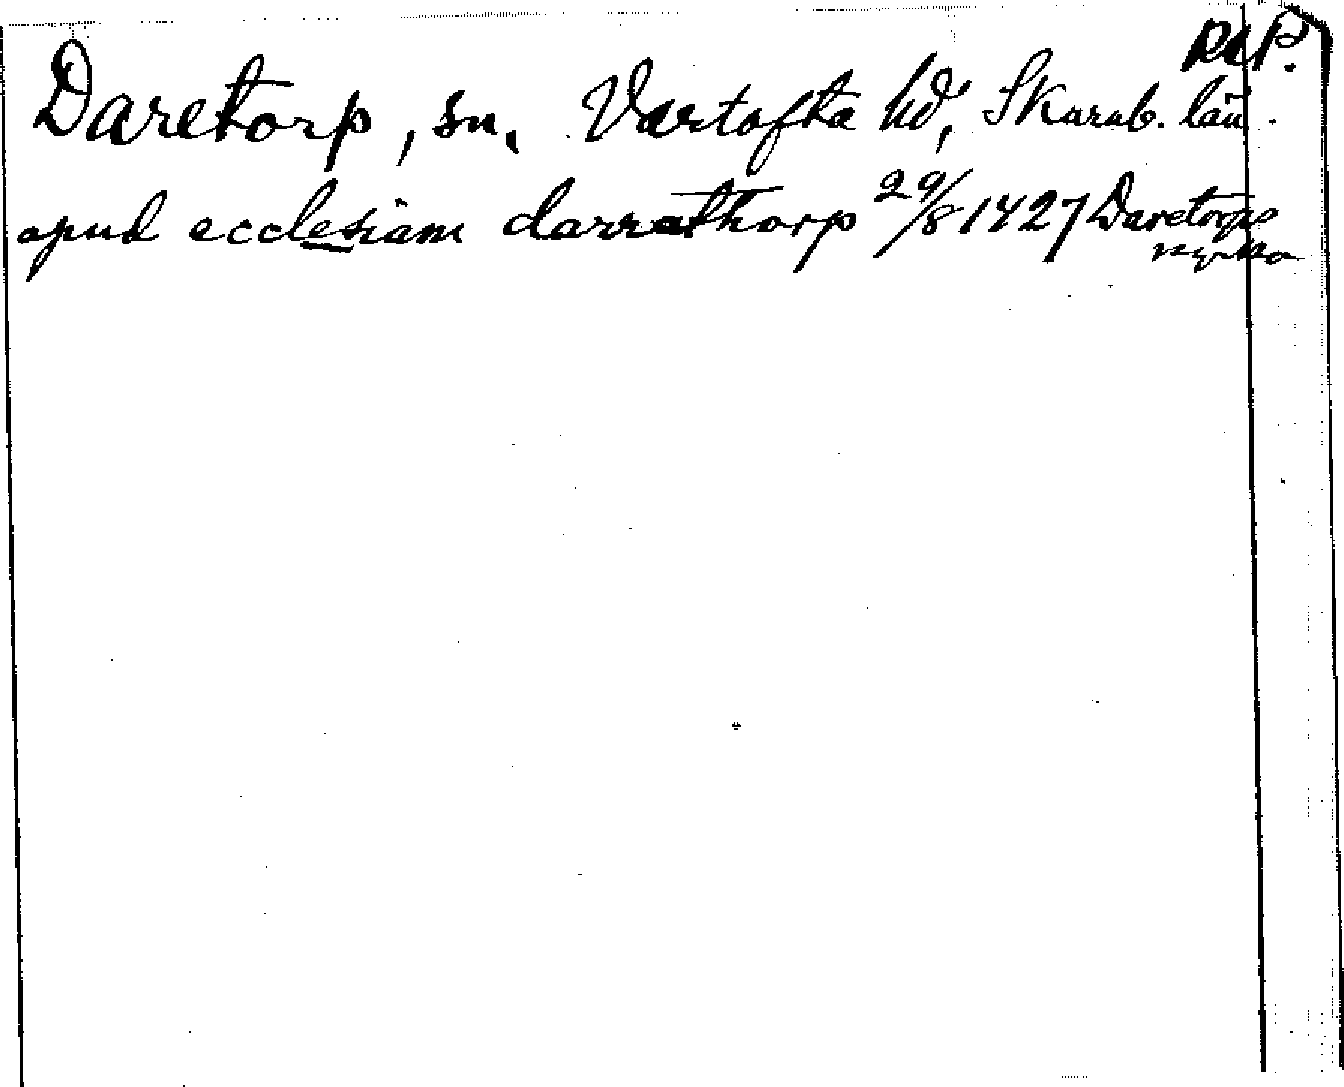 RAP.
Daretorp, sn, Vartofta hd, Skarab. län.
apud ecclesiam darrathorp 29/8 1427 Daretorps
kyrka